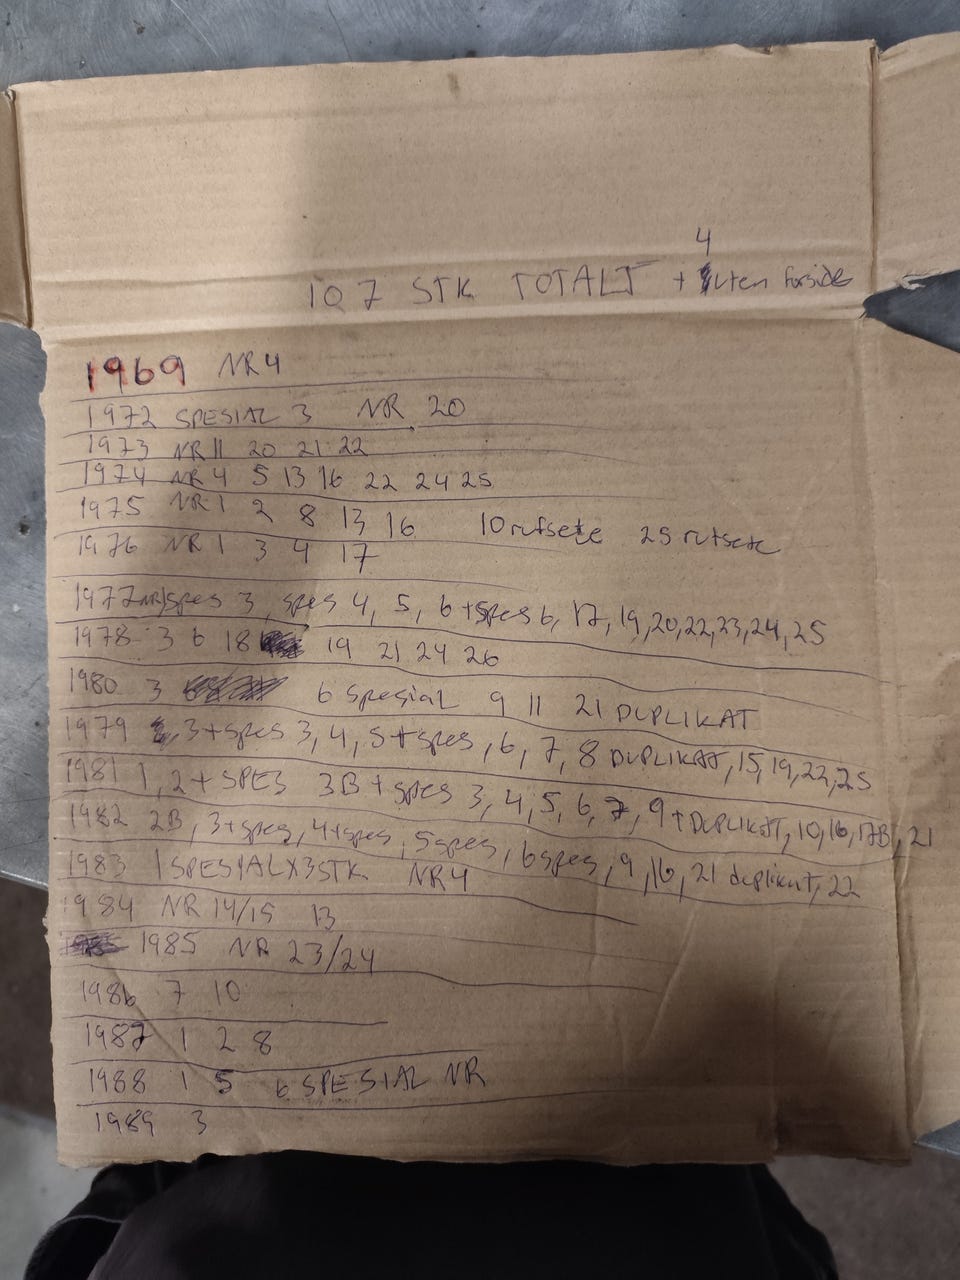 4
107 STK TOTALT + uten forside
1969 NR 4
1972 SPESIAL 3 NR 20
1973 NR 11 20 21 22
1974 NR 4 5 13 16 22 24 25
1975 NR 1 2 8 13 16 10 rufsete 25 rufsete
1976 NR 1 3 4 17
1977 NR/spes 3, spes 4, 5, 6 + spes 6, 17, 19, 20, 22, 23, 24, 25
1978 3 6 18 19 21 24 26
1980 3 6 spesiaL 9 11 21 DUPLIKAT
1979 3 + spes 3, 4, 5 + spes, 6, 7, 8 DUPLIKAT, 15, 19, 22, 25
1981 1, 2 + SPES 3B + spes 3, 4, 5, 6, 7, 9 + DUPLIKAT, 10, 16, 17B, 21
1982 2B, 3 + spes, 4 + spes, 5 spes, 6 spes, 9, 16, 21 duplikat, 22
1983 1 SPESIAL X 3 STK NR 4
1984 NR 14/15 13
1985 NR 23/24
1986 7 10
1987 1 2 8
1988 1 5 6 SPESIAL NR
1989 3